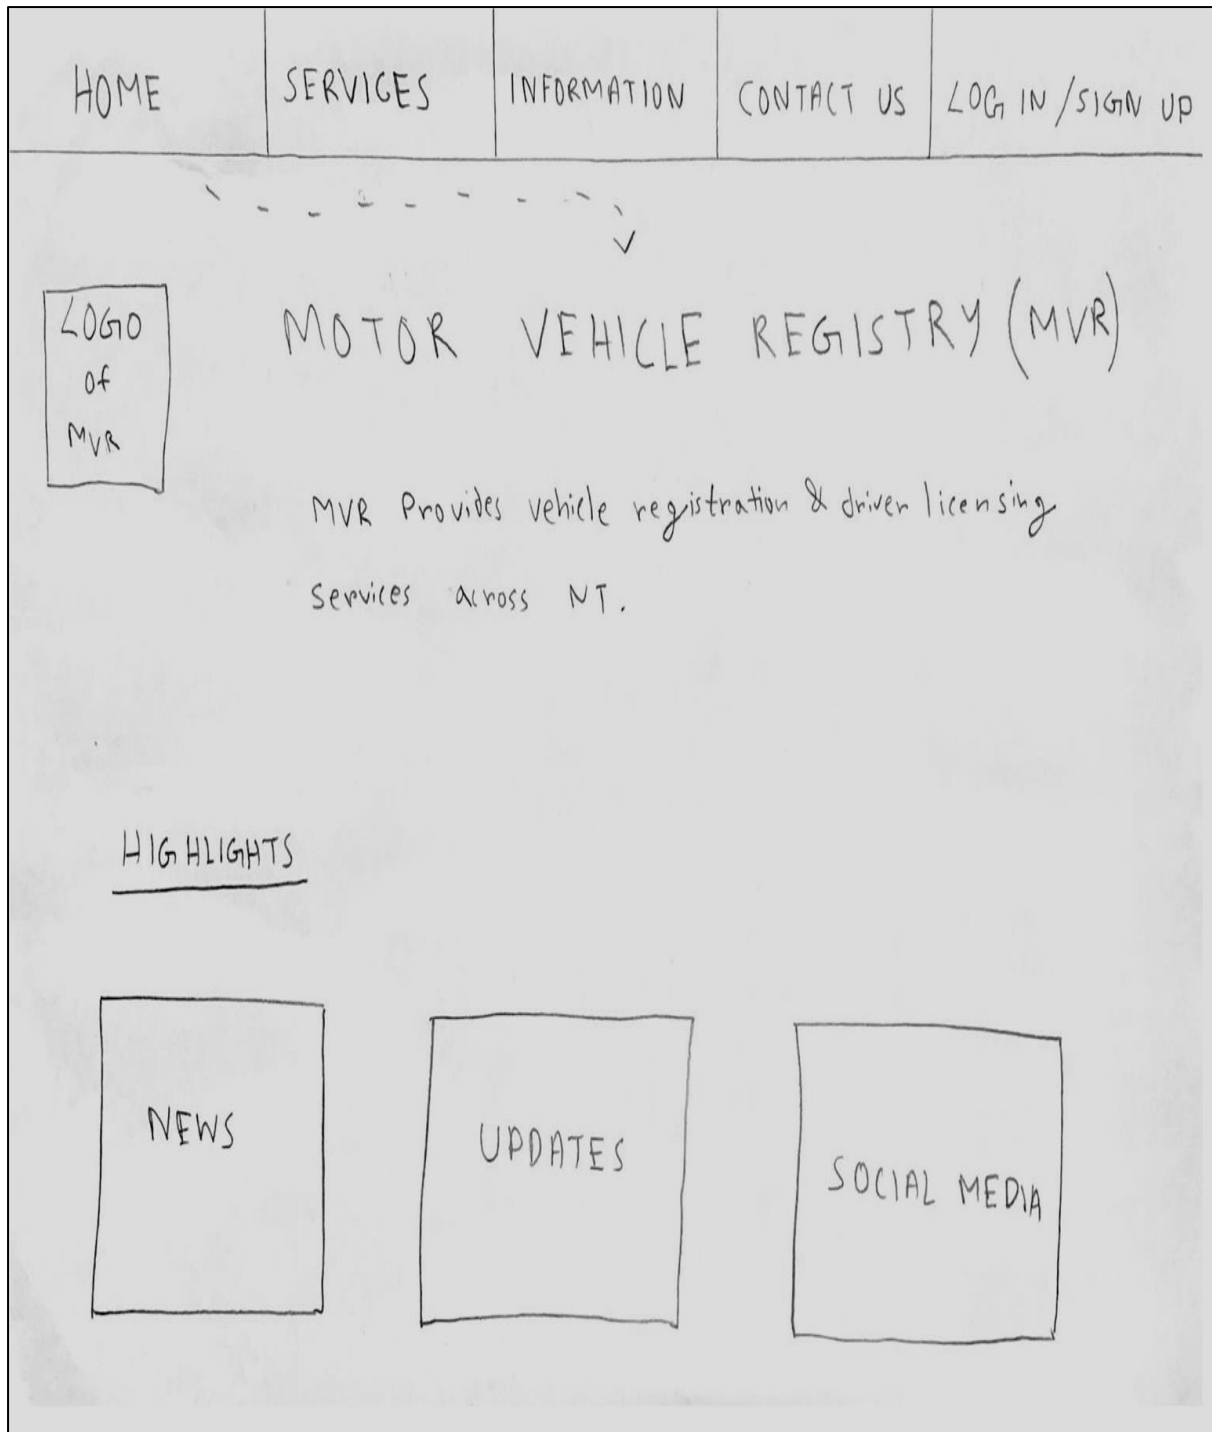 HOME
SERVICES
INFORMATION
CONTACT US
LOG IN / SIGN UP
LOGO
of
MVR
MOTOR VEHICLE REGISTRY (MVR)
MVR Provides vehicle registration & driver licensing
services across NT.
HIGHLIGHTS
NEWS
UPDATES
SOCIAL MEDIA